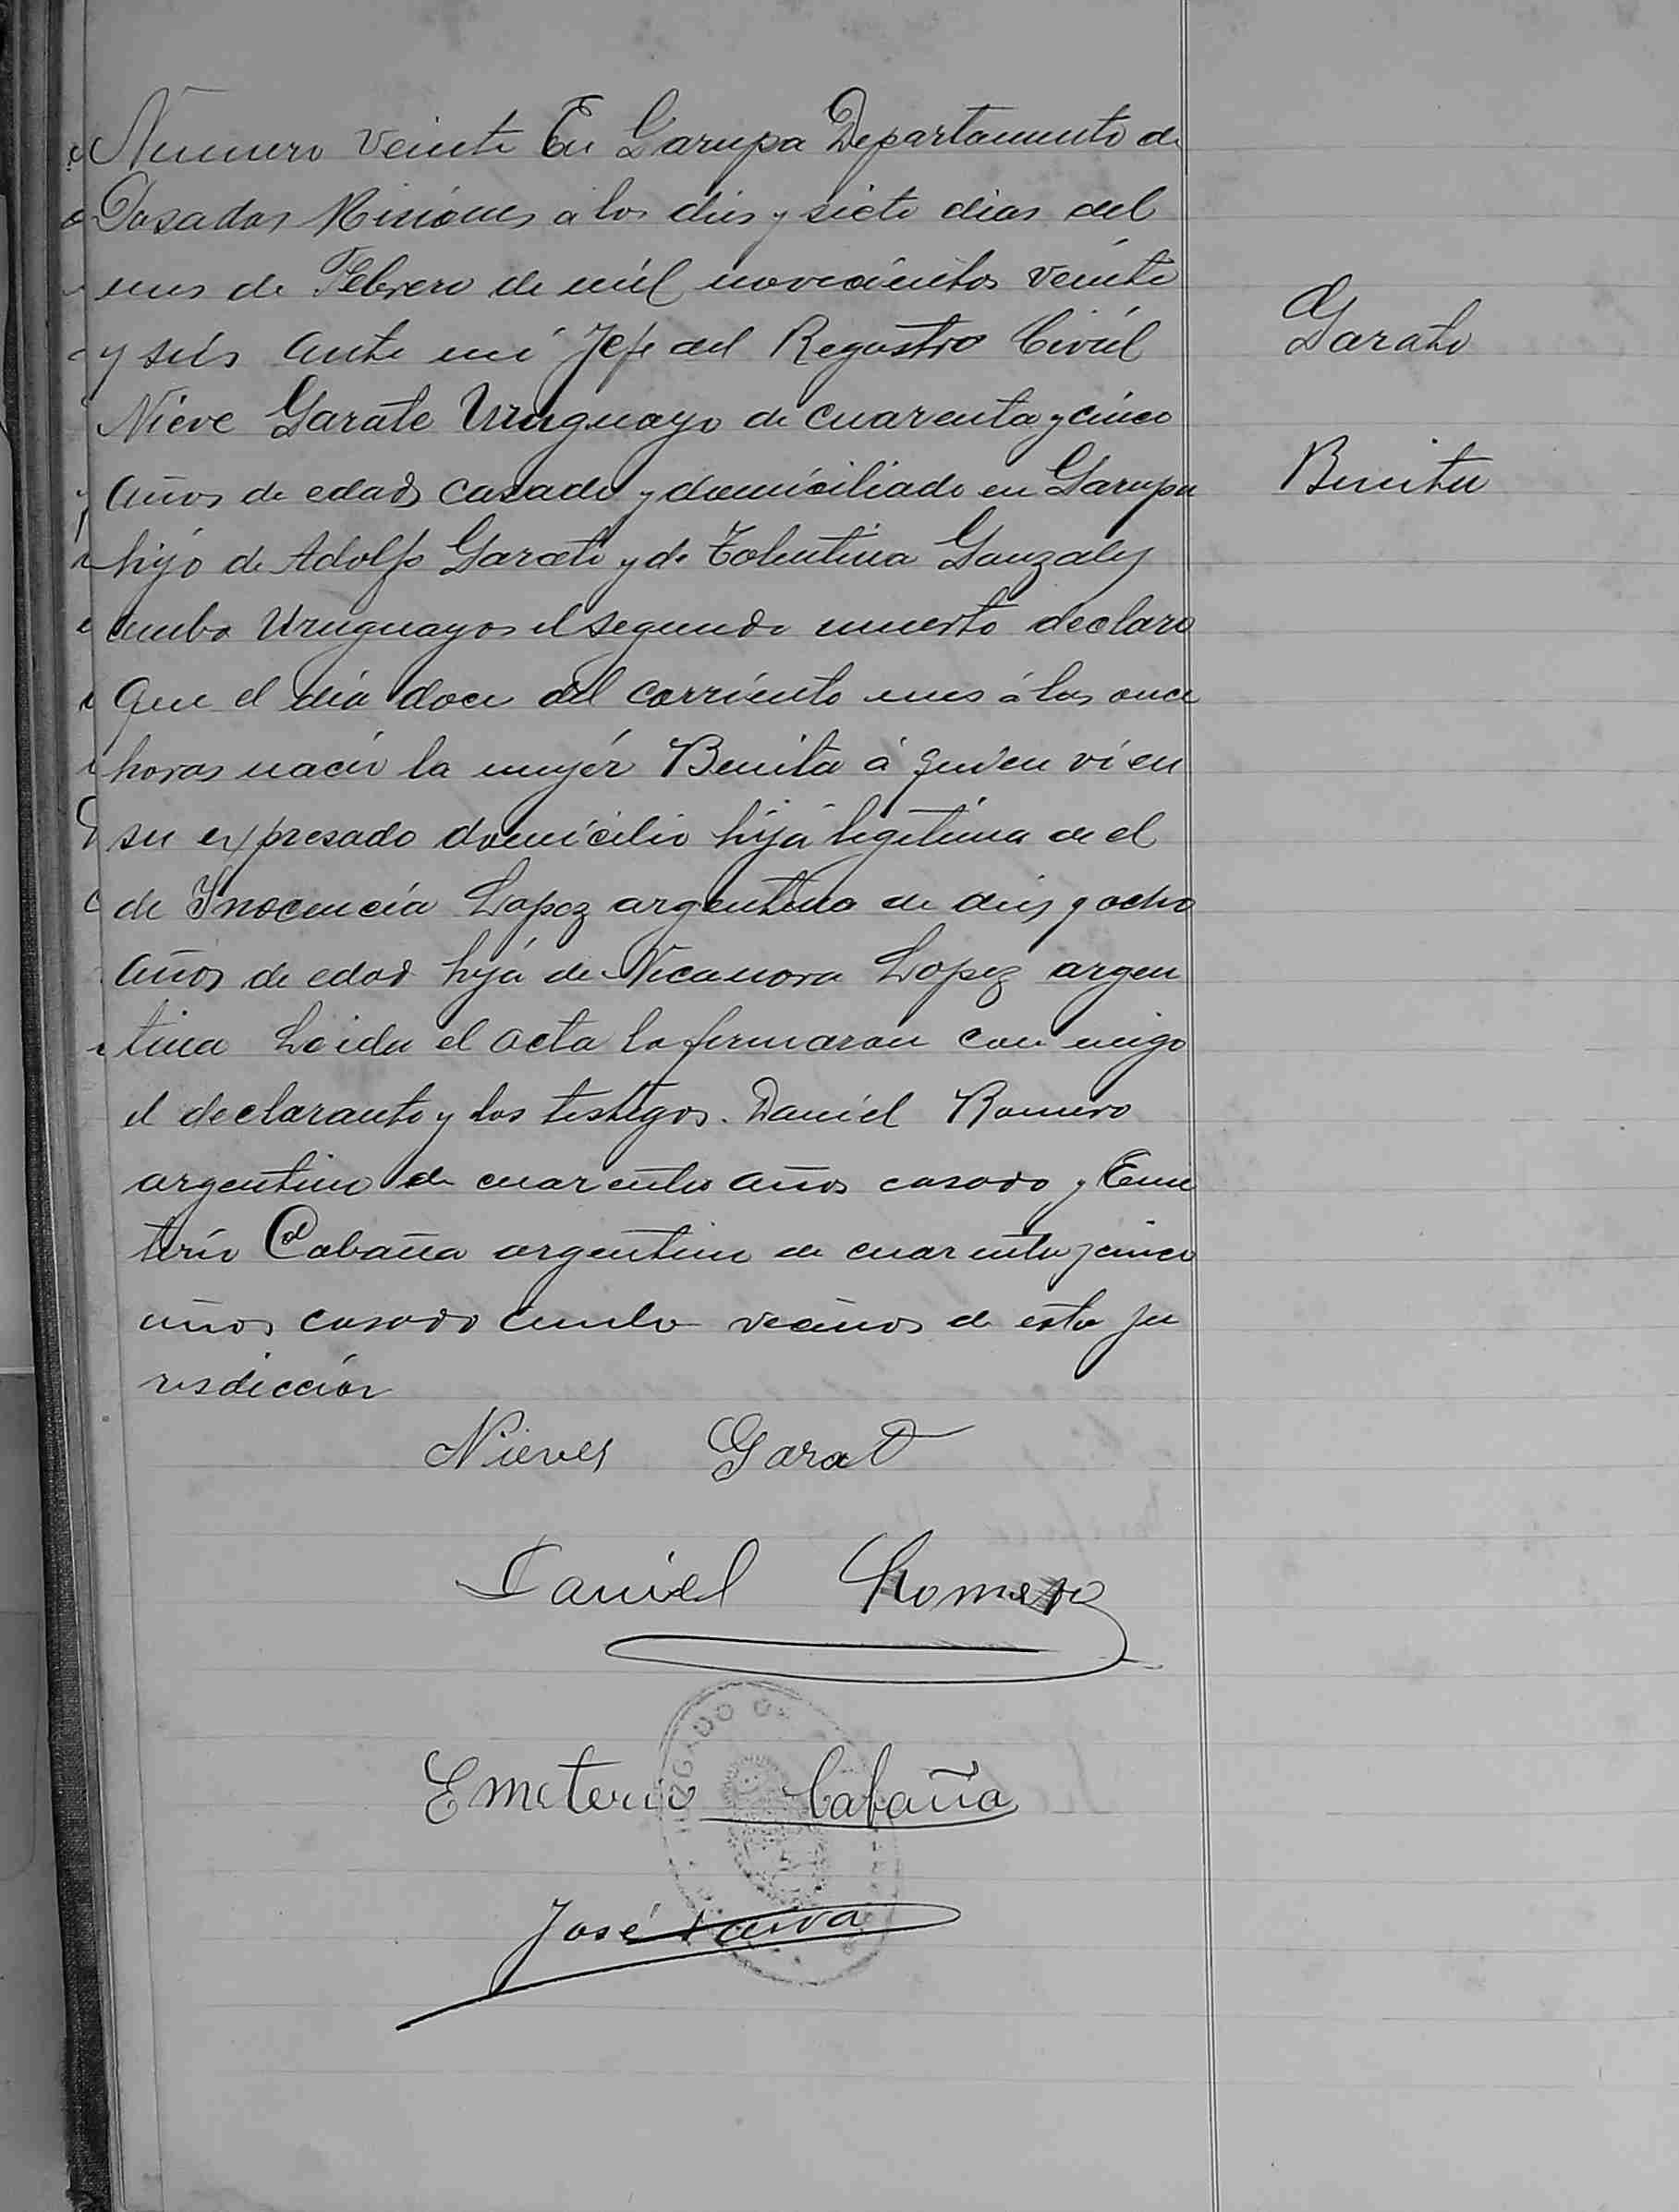 Numero veinte En Garupa Departamento de
Posadas Misiones a los dies y siete dias del
mes de Febrero de mil novecientos veinte
y seis ante mi Jefe del Registro Civil
Nieve Garate Uruguayo de cuarenta y cinco
años de edad casado y domiciliado en Garupa
hijo de Adolfo Garate y de Tolentina Gonzalez
ambo Uruguayos el segundo muerto declaro
Que el día doce del corriente mes á las once
horas nació la mujér Benita á quien ví en
su expresado domicilio hija legitima de el
de Inocencia Lopez argentina de dies y ocho
años de edad hija de Nicanora Lopez argen
tina Leida el acta la firmaron con migo
el declarante y los testigos. Daniel Romero
argentino de cuarenta años casado y Eme
terio Cabaña argentino de cuarenta y cinco
años casado ambo vecinos de esta ju
risdiccion
Garate
Benita
Nieves Garat
Daniel Romero
Emeterio Cabaña
José
JUZGADO DE